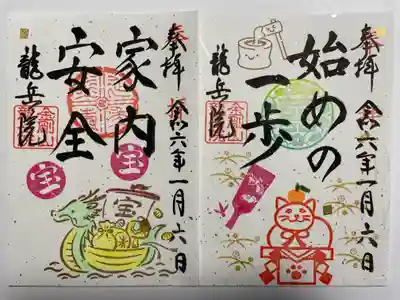 奉拝
令和六年一月六日
始めの
一歩
龍岳院
奉拝
令和六年一月六日
家内
安全
龍岳院
宝
宝
宝